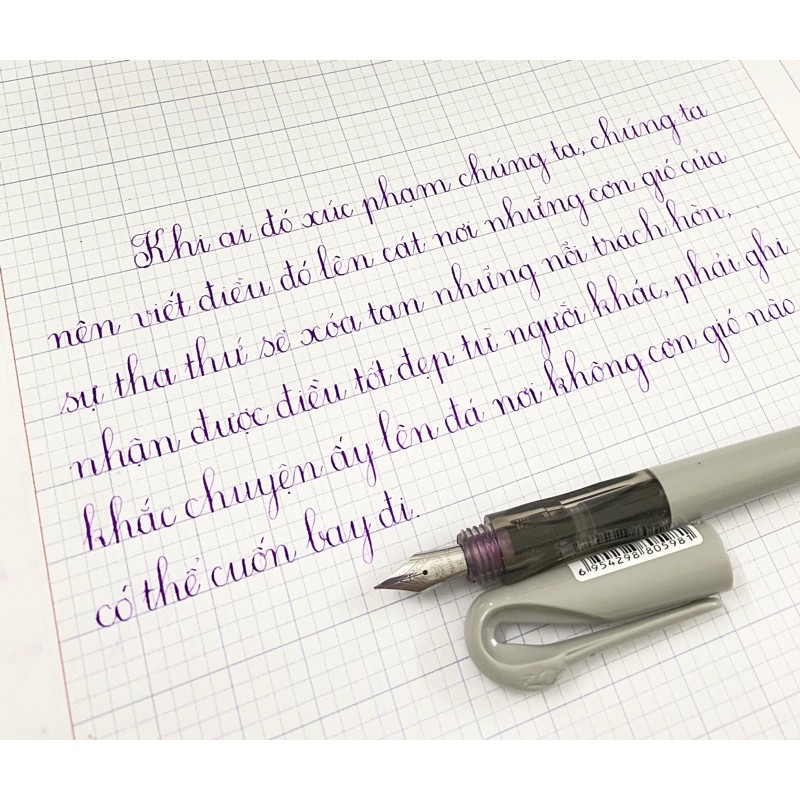 Khi ai đó xúc phạm chúng ta, chúng ta
nên viết điều đó lên cát nơi những cơn gió của
sự tha thứ sẽ xóa tan những nỗi trách hờn,
nhận được điều tốt đẹp từ người khác, phải ghi
khắc chuyện ấy lên đá nơi không cơn gió nào
có thể cuốn bay đi.
6 954298 805981